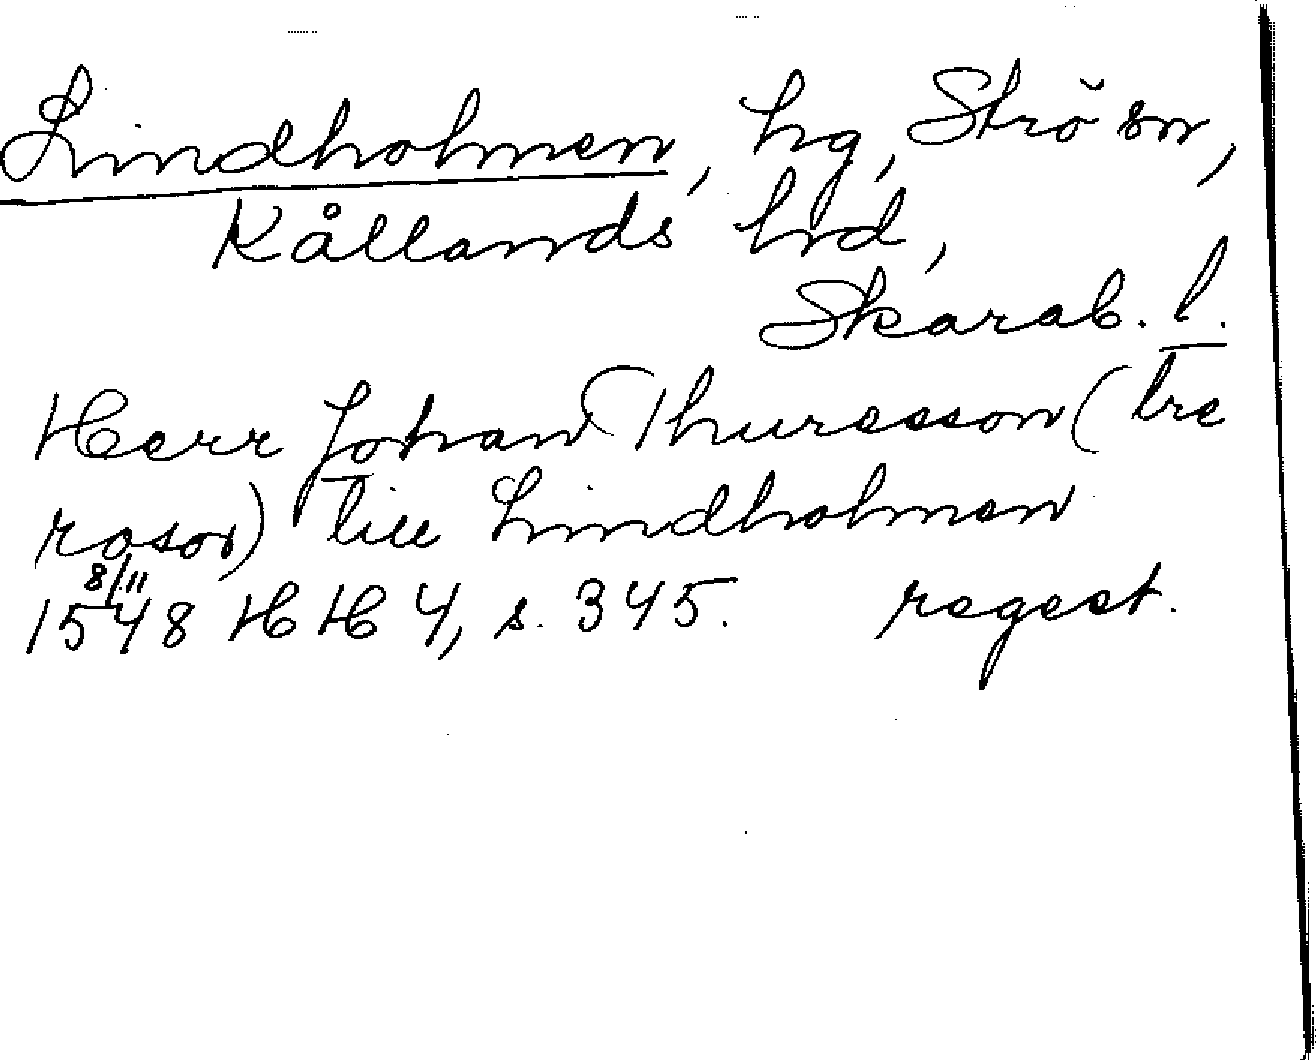 Lindholmen, hg, Strö sn,
Kållands hrd,
Skarab. l.
Herr Johan Thuresson (tre
rosor) till Lindholmen
8/11
1548 HH 4, s. 345. regest.